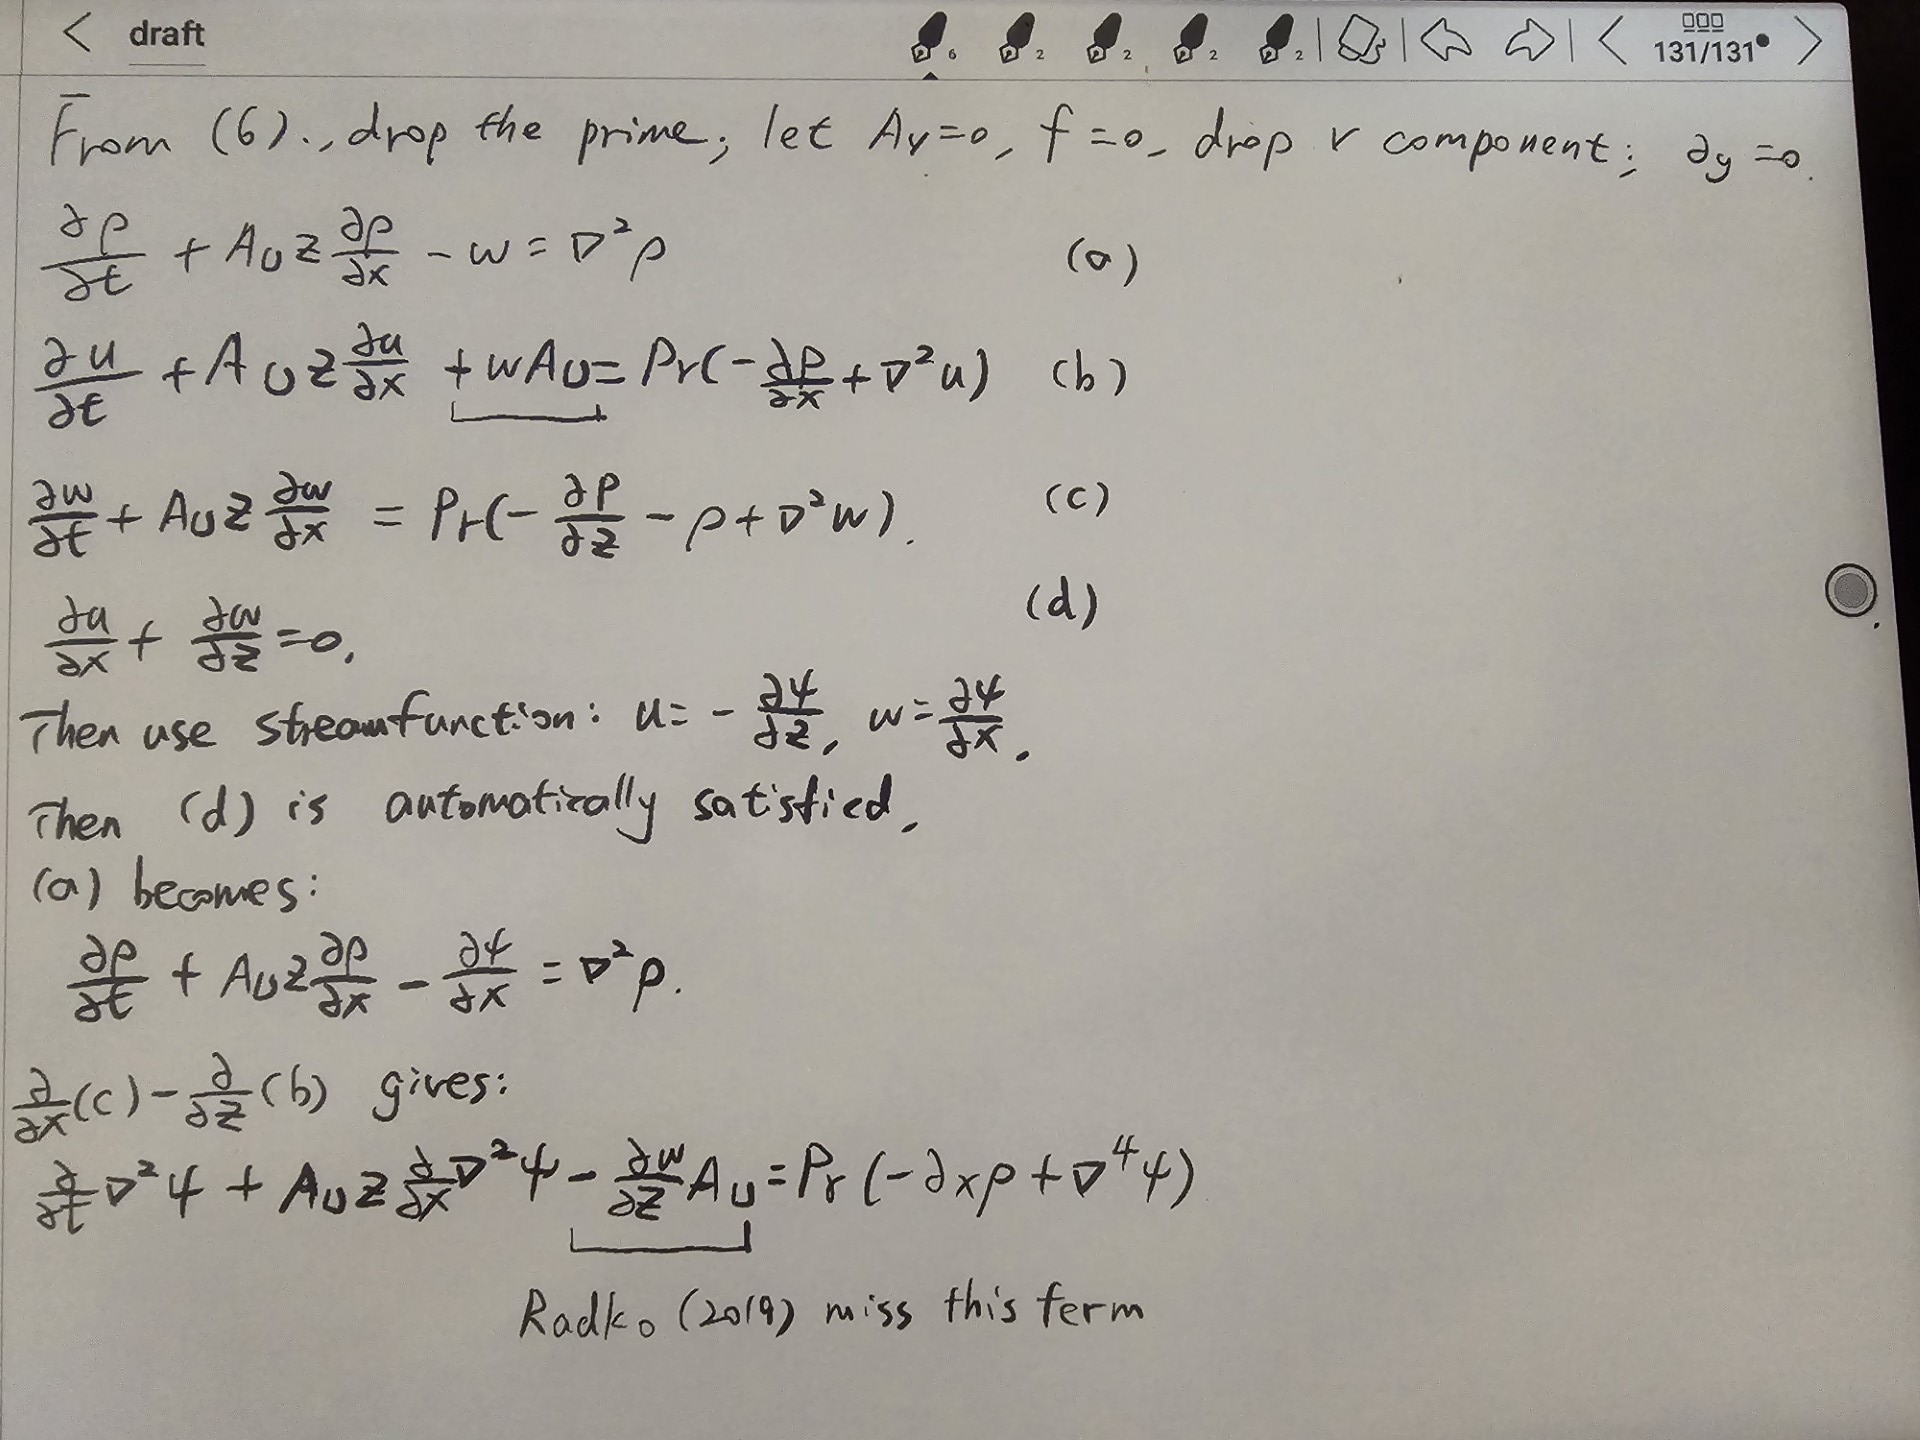 draft
6 2 2 2 2 131/131
From (6)., drop the prime; let A_V=0, f=0, drop v component; ∂y=0.
∂ρ/∂t + A_U z ∂ρ/∂x - w = ∇²ρ (a)
∂u/∂t + A_U z ∂u/∂x + wA_U = Pr(-∂p/∂x + ∇²u) (b)
∂w/∂t + A_U z ∂w/∂x = Pr(-∂p/∂z - ρ + ∇²w). (c)
∂u/∂x + ∂w/∂z = 0. (d)
Then use streamfunction: u = -∂ψ/∂z, w = ∂ψ/∂x.
Then (d) is automatically satisfied.
(a) becomes:
∂ρ/∂t + A_U z ∂ρ/∂x - ∂ψ/∂x = ∇²ρ.
∂/∂x (c) - ∂/∂z (b) gives:
∂/∂t ∇²ψ + A_U z ∂/∂x ∇²ψ - ∂w/∂z A_U = Pr(-∂xρ + ∇⁴ψ)
Radko (2019) miss this term